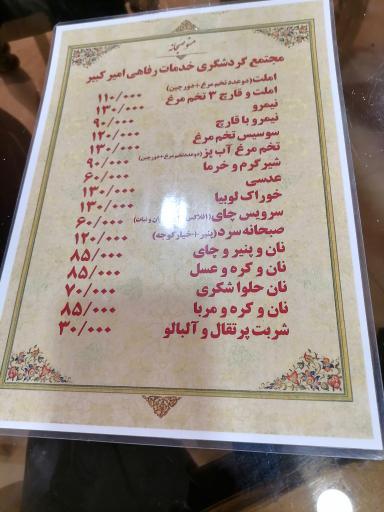 منو صبحانه
مجتمع گردشگری خدمات رفاهی امیر کبیر
املت (دو عدد تخم مرغ + دورچین) ۱۱۰/۰۰۰
املت و قارچ ۳ تخم مرغ ۱۳۰/۰۰۰
نیمرو ۹۰/۰۰۰
نیمرو با قارچ ۱۲۰/۰۰۰
سوسیس تخم مرغ ۱۳۰/۰۰۰
تخم مرغ آب پز (دو عدد تخم مرغ + دورچین) ۹۰/۰۰۰
شیر گرم و خرما ۶۰/۰۰۰
عدسی ۱۳۰/۰۰۰
خوراک لوبیا ۱۳۰/۰۰۰
سرویس چای (فلاکس و نبات) ۶۰/۰۰۰
صبحانه سرد (پنیر + خیار گوجه) ۱۲۰/۰۰۰
نان و پنیر و چای ۸۵/۰۰۰
نان و کره و عسل ۸۵/۰۰۰
نان حلوا شکری ۷۰/۰۰۰
نان و کره و مربا ۸۵/۰۰۰
شربت پرتقال و آلبالو ۳۰/۰۰۰